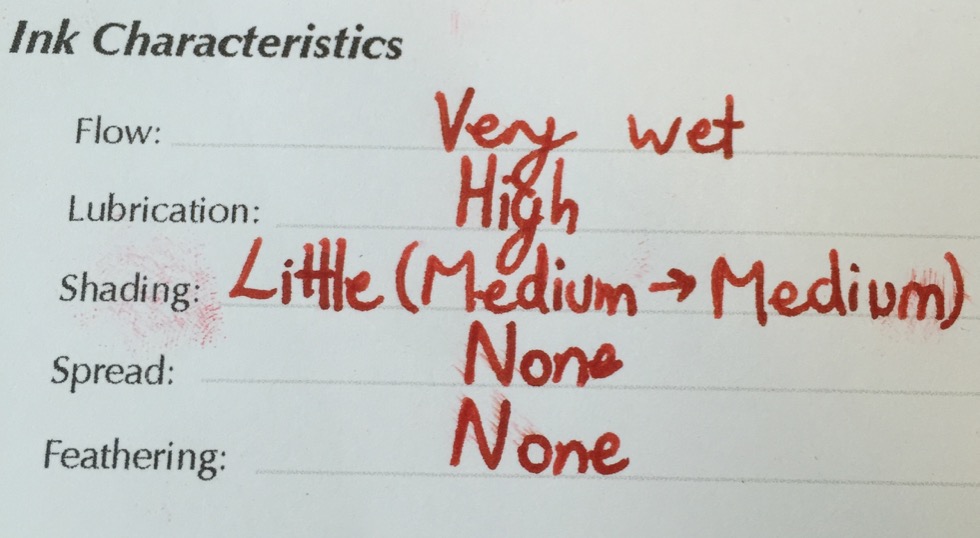 Ink Characteristics
Flow: Very wet
Lubrication: High
Shading: Little (Medium → Medium)
Spread: None
Feathering: None